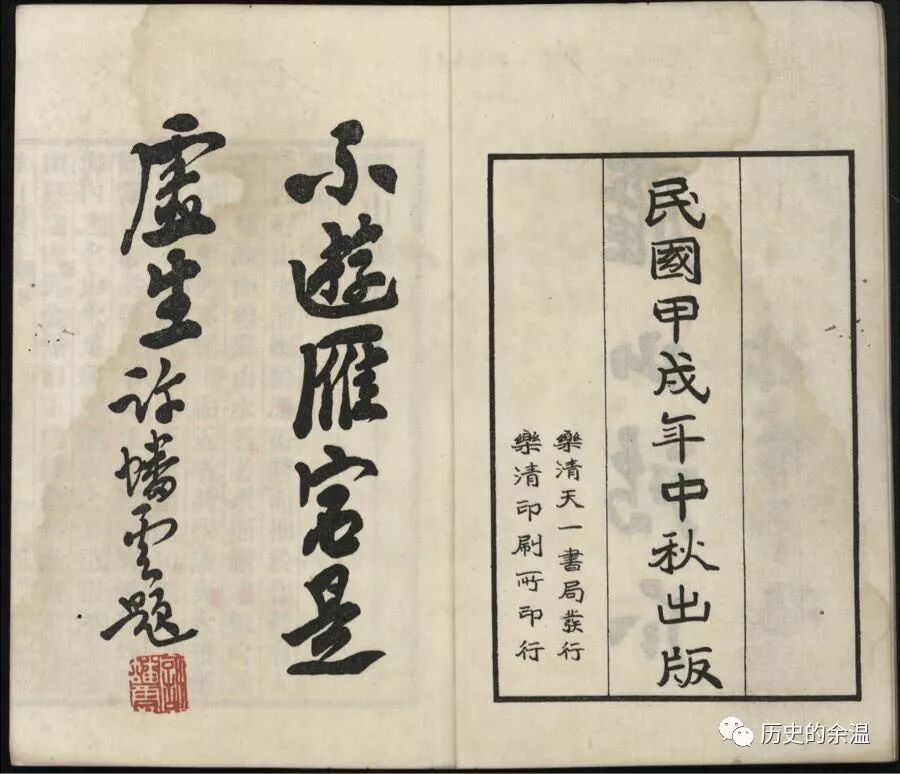 民國甲戌年中秋出版
樂清天一書局發行
樂清印刷所印行
不遊雁宕是
虛生許蟠雲題
历史的余温